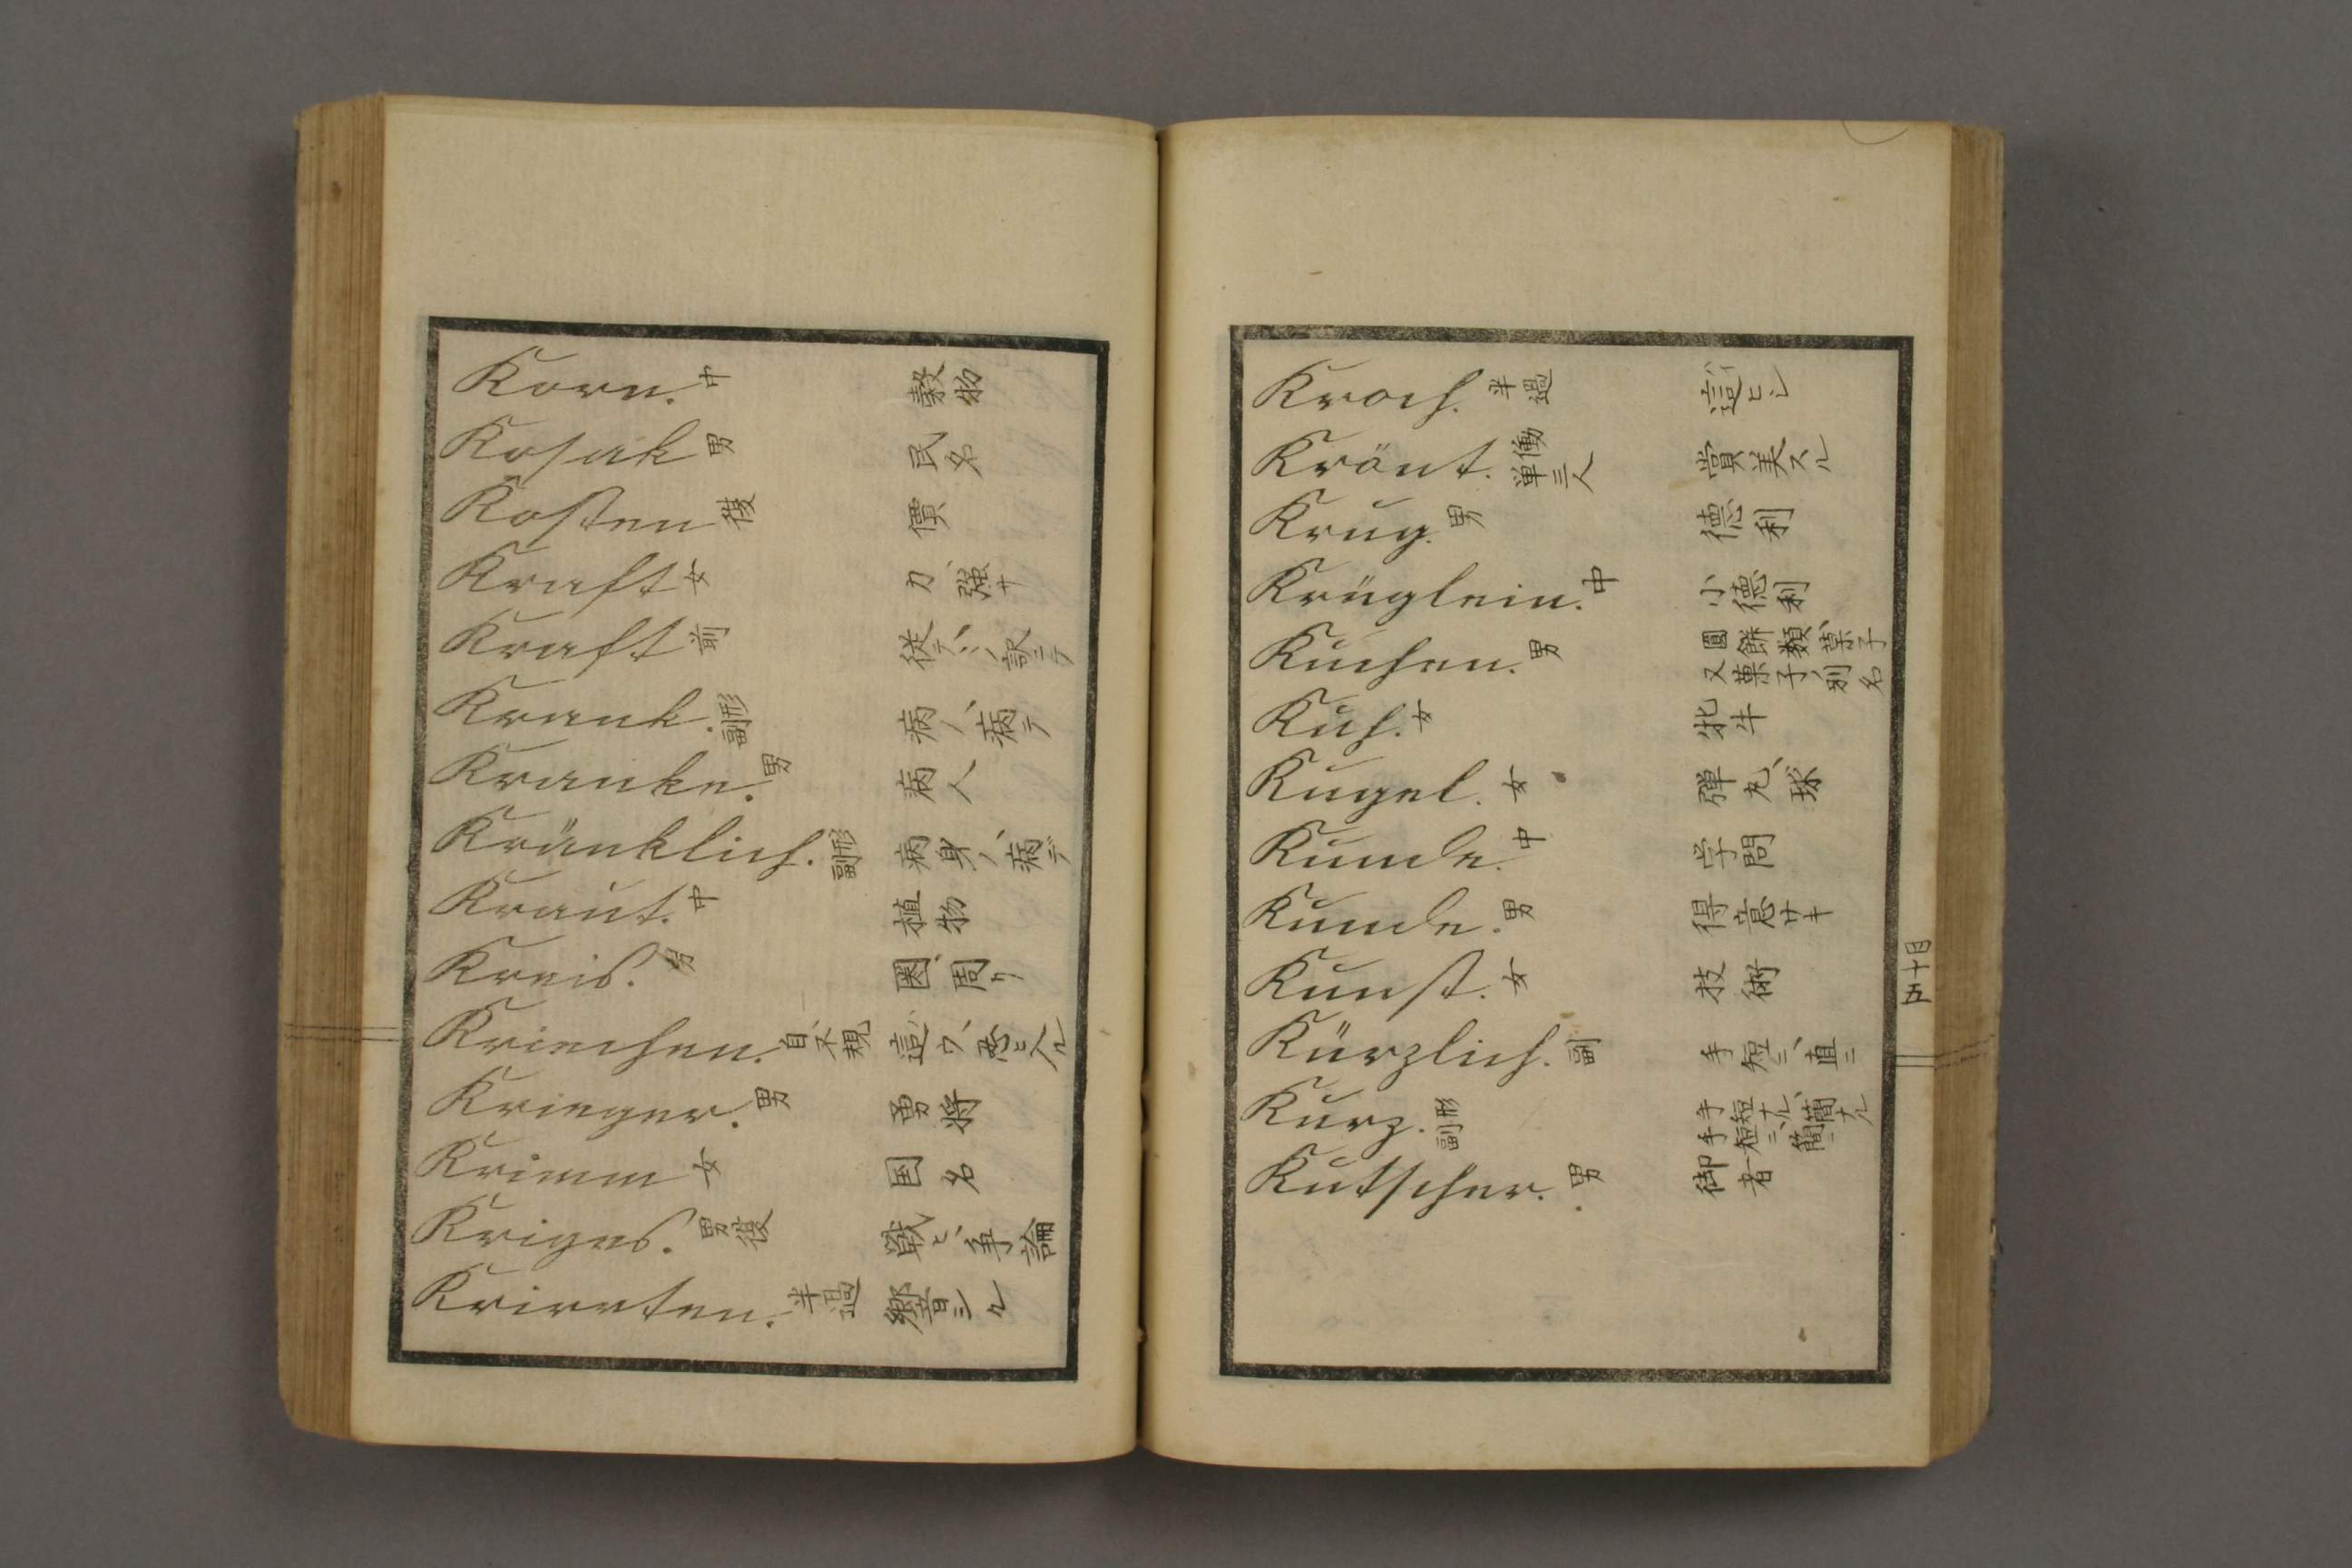 Korn. 中 穀物
Kosak 男 民名
Kosten 複 價
Kraft 女 力、強サ
Kraft 前 從テ、ノ訳ニテ
Krank. 形副 病ノ、病テ
Kranke. 男 病人
Kränklich. 形副 病身ノ、病デ
Kraut. 中 植物
Kreis. 男 圏、周リ
Kriechen. 自、不規 這ウ、ヒ入ル
Krieger. 男 勇将
Krimm 女 国名
Kriges. 男複 戦ヒ、争論
Krirrten. 半過 響シタ
Kroch. 半過 這ヒシ
Krönt. 働単三人 賞美スル
Krug. 男 徳利
Krüglein. 中 小徳利
Kuchen. 男 圓餅類、菓子
又菓子ノ別名
Kuh. 女 牝牛
Kugel. 女 弾丸、球
Kunde. 中 学問
Kunde. 男 得意サキ
Kunst. 女 技術
Kürzlich. 副 手短ニ、直ニ
Kurz. 形副 手短ナル、簡ナル
手短ニ、簡ニ
Kutscher. 男 御者
五十目